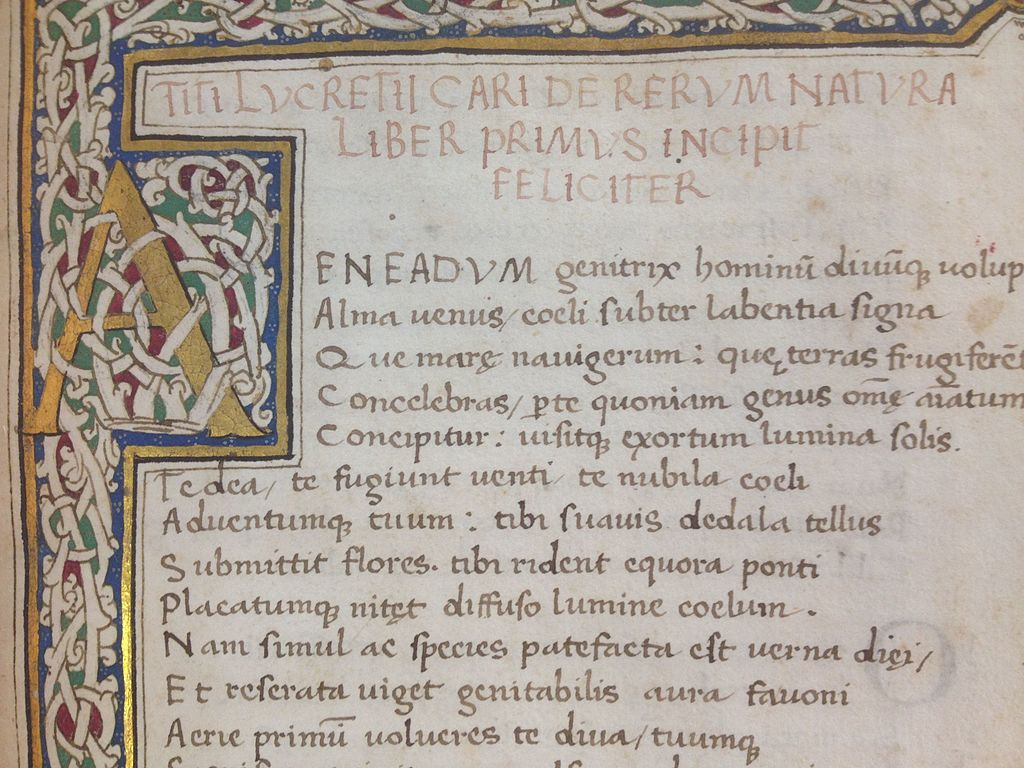 TITI LVCRETII CARI DE RERVM NATVRA
LIBER PRIMVS INCIPIT
FELICITER
AENEADVM genitrix hominū diuūq; volup
Alma venus/ coeli subter labentia signa
Que marę nauigerum: quę terras frugiferēt
Concelebras/ ꝑte quoniam genus om̄ę aīatum
Concipitur: uisitq; exortum lumina solis.
Te dea/ te fugiunt venti/ te nubila coeli
Aduentumq; tuum: tibi suauis dedala tellus
Submittit flores. tibi rident equora ponti
Placatumq; nitęt diffuso lumine coelum.
Nam simul ac species patefacta est verna dięi/
Et reserata uiget genitabilis aura fauoni
Aerie primū uolucres te diua/ tuumq;